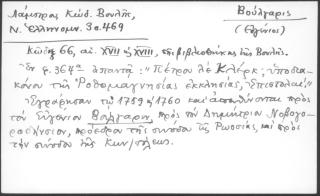 Λάμπρος Κώδ. Βουλῆς,
Ν. Ἑλληνομν. 3 σ. 469
Βούλγαρις
(Εὐγένιος)
Κῶδιξ 66, αἰ. XVII ἢ XVIII, τῆς βιβλιοθήκης τῆς Βουλῆς.
Ἐν φ. 364α ἀπαντᾷ: "Πέτρου λὲ Κλέρκ, ὑποδια-
κόνου τῆς Ῥοθομαγνησίας ἐκκλησίας, ἐπιστολαί"
Ἐγράφησαν τῷ 1759 ἢ 1760 καὶ ἀπευθύνονται πρὸς
τὸν Εὐγένιον Βούλγαριν, πρὸς τὸν Δημήτριον Νοβογο-
ρδίησιον, πρόεδρον τῆς συνόδου τῆς Ῥωσσίας, καὶ πρὸς
τὴν σύνοδον τῆς Κων/πόλεως.